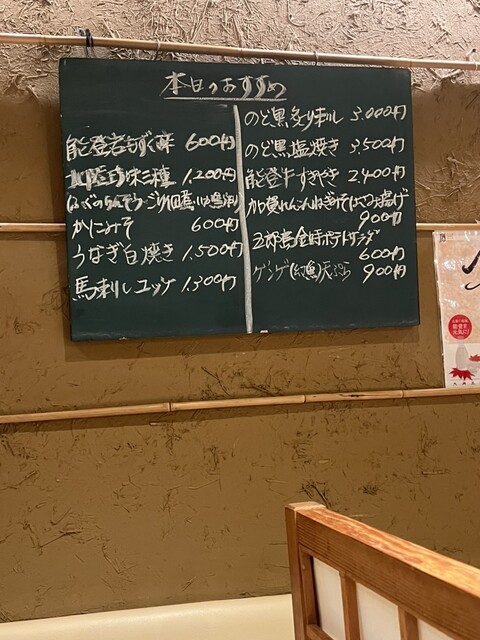 本日のおすすめ
能登岩もずく酢 600円
珍味三種 1,200円
かにみそ 600円
うなぎ白焼き 1,500円
馬刺しユッケ 1,300円
のど黒炙り刺し 3,000円
のど黒塩焼き 3,500円
能登牛すきやき 2,400円
はさみ揚げ
900円
五郎島金時ポテトサラダ
600円
ゲンゲ(幻魚)天ぷら 900円